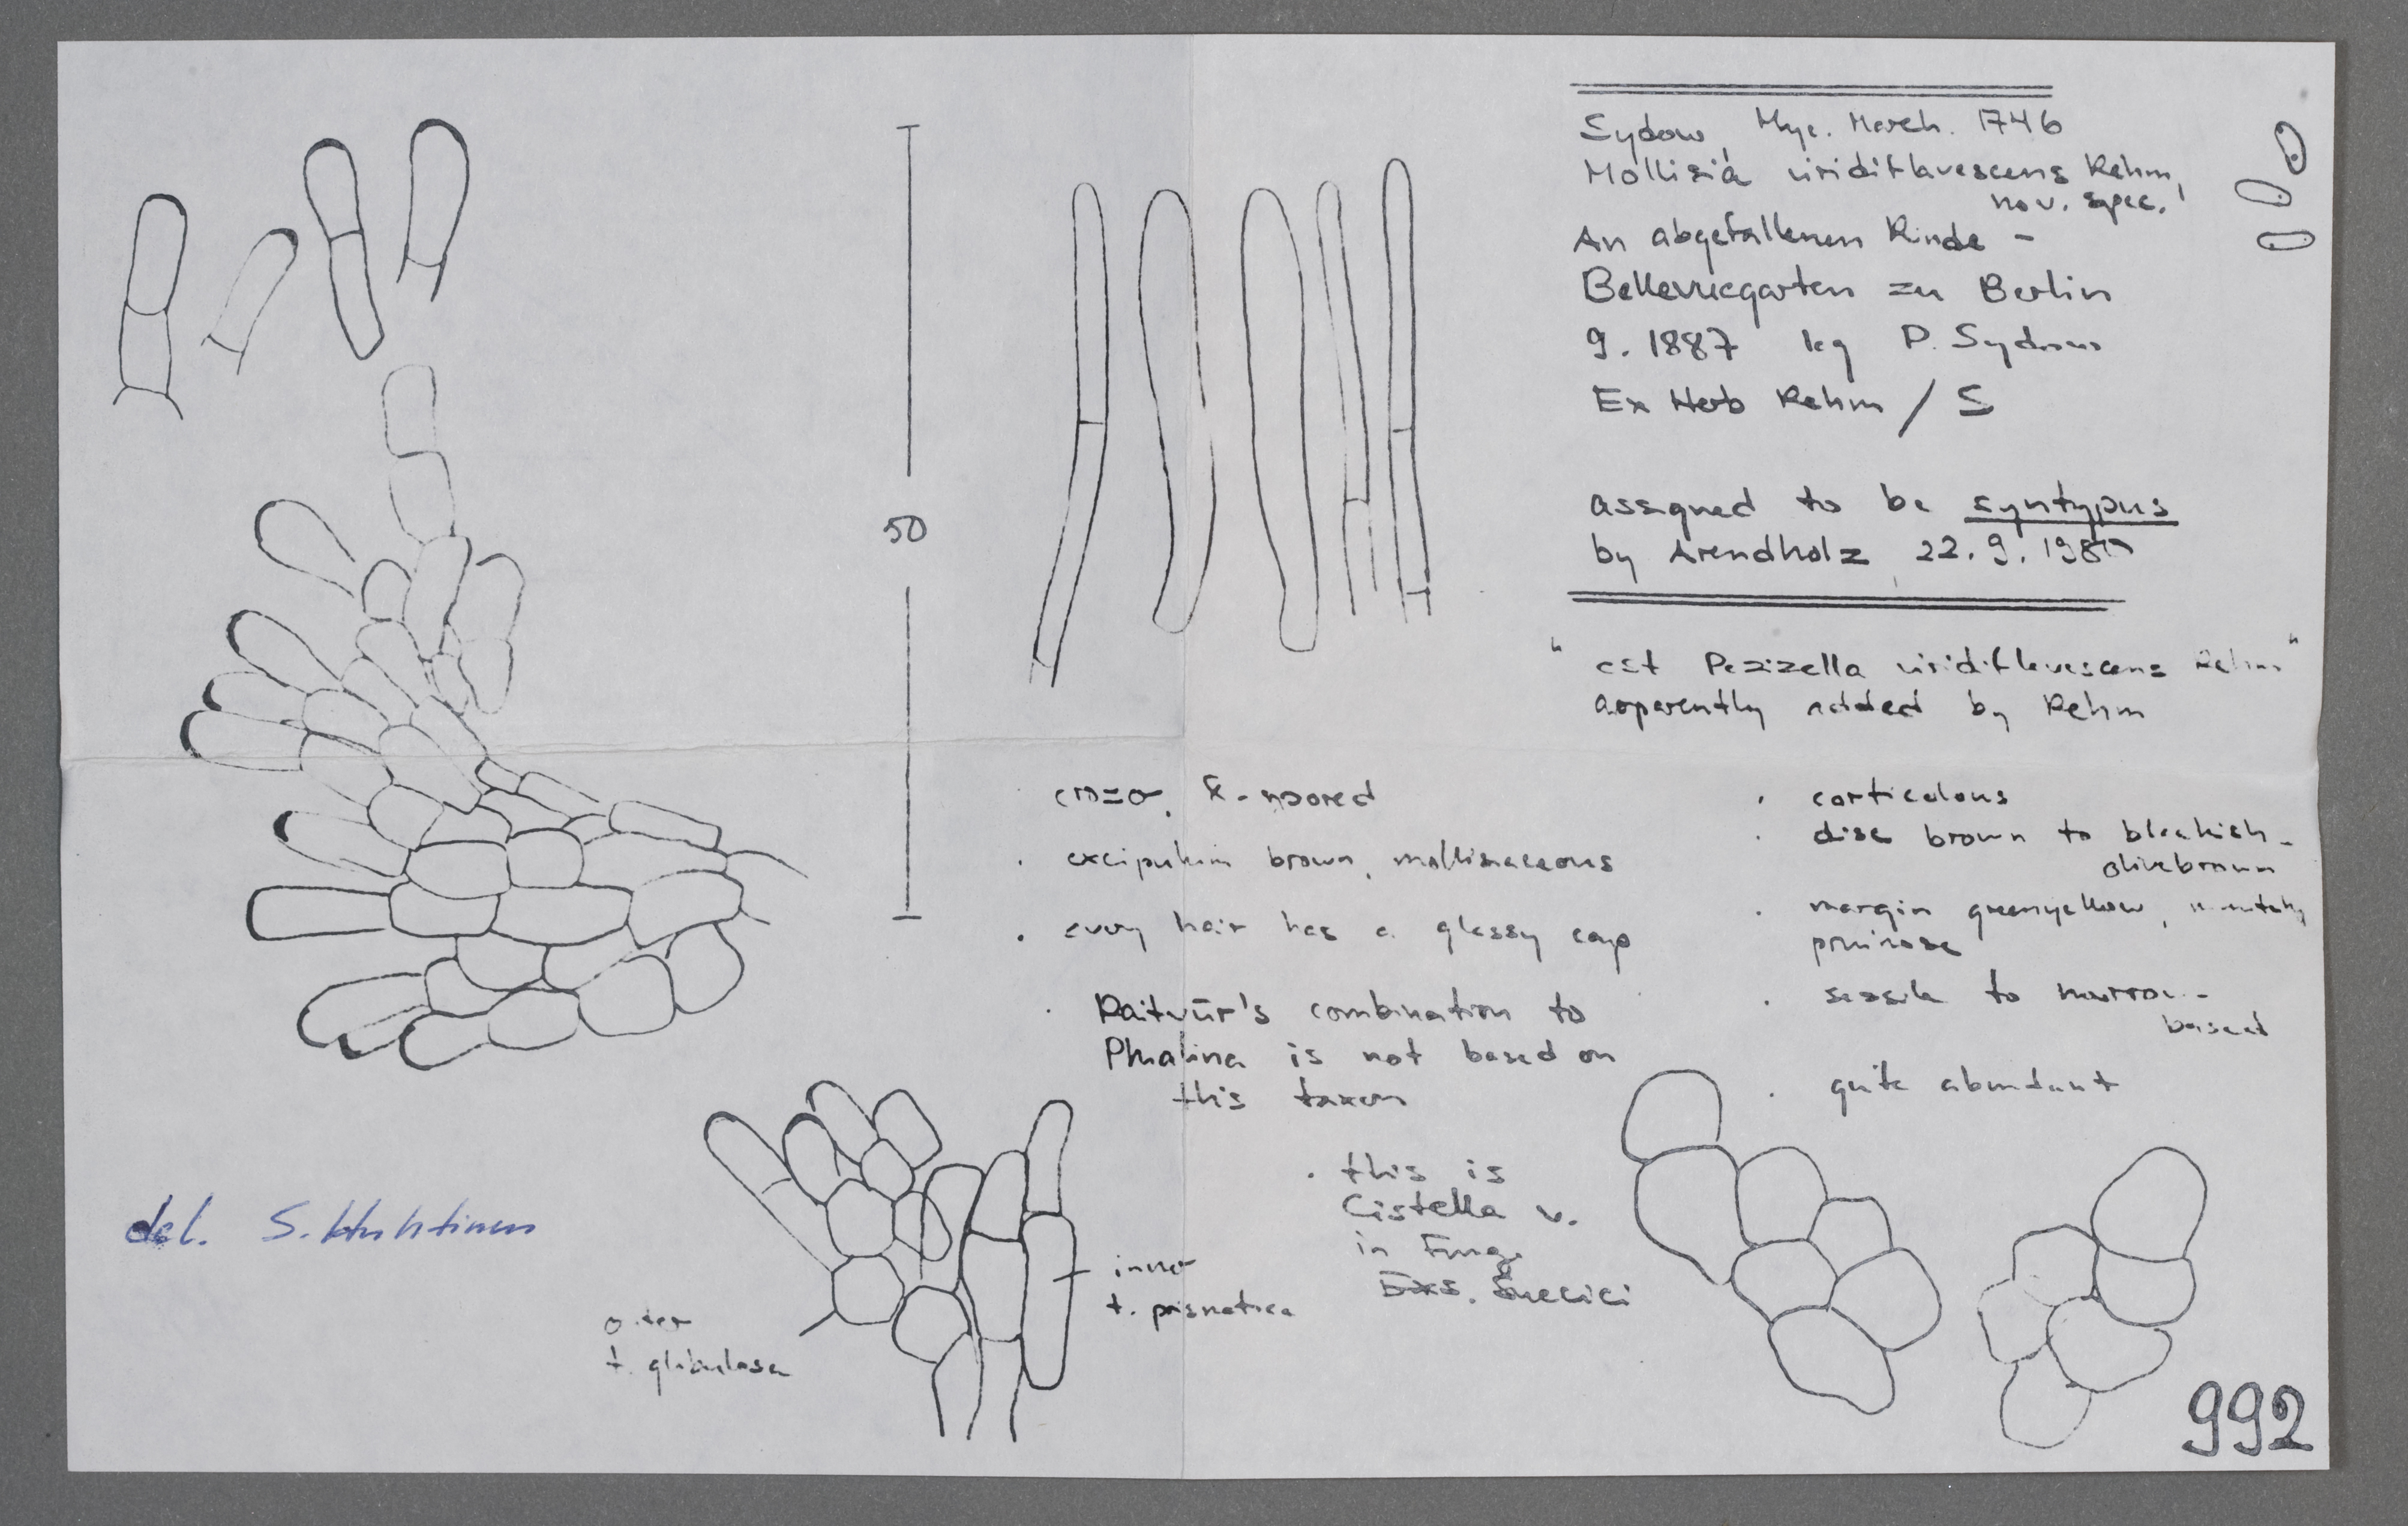 Sydow, Myc. March. 1746
Mollisia viridiflavescens Rehm,
nov. spec.
An abgefallenen Rinde -
Bellevuegarten zu Berlin
9. 1887 leg P. Sydow
Ex Herb Rehm / S
assigned to be syntypus
by Arendholz 22. 9. 198
"est Pezizella viridiflavescens Rehm"
apparently added by Rehm
50
· cro=o, 8-spored
· excipulum brown, mollisiaceous
· every hair has a glassy cap
· Raitviir's combination to
Phialina is not based on
this taxon
· this is
Cistella v.
in Fung.
Exs. Suecici
· corticolous
· disc brown to blackish-
olivebrown
· margin greenyellow,
pruinose
· sessile to narrow-
based
· quite abundant
del. S. Huhtinen
outer
t. globulosa
inner
t. prismatica
992